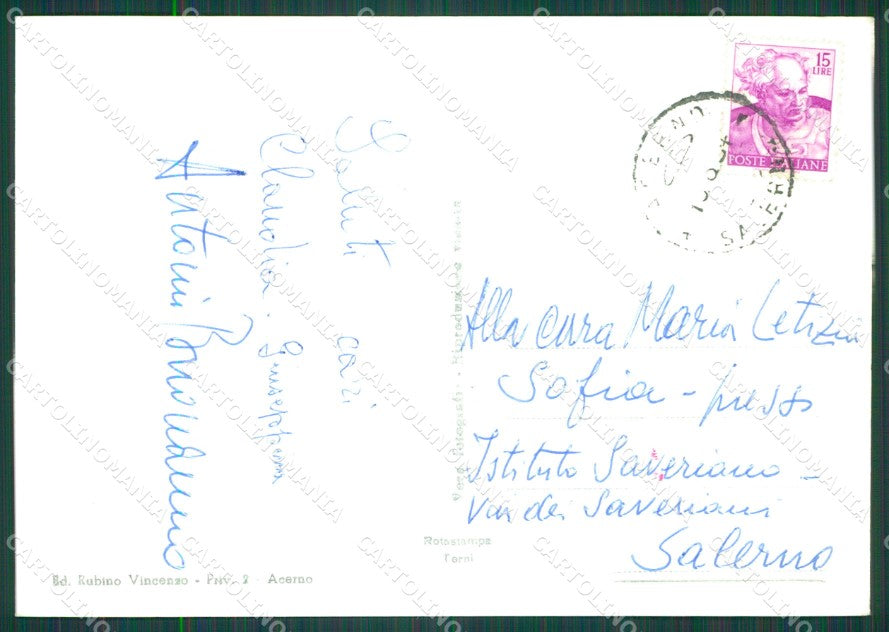 Saluti cari
Claudia. Giuseppina
15
LIRE
POSTE ITALIANE
SALERNO
Alla cara Maria Letizia
Sofia - presso
Istituto Saveriano -
Via dei Saveriani
Salerno
Vera Fotografia - Riproduzione vietata
Rotastampa
Terni
Ed. Rubino Vincenzo - Priv. 2 - Acerno
CARTOLINOMANIA